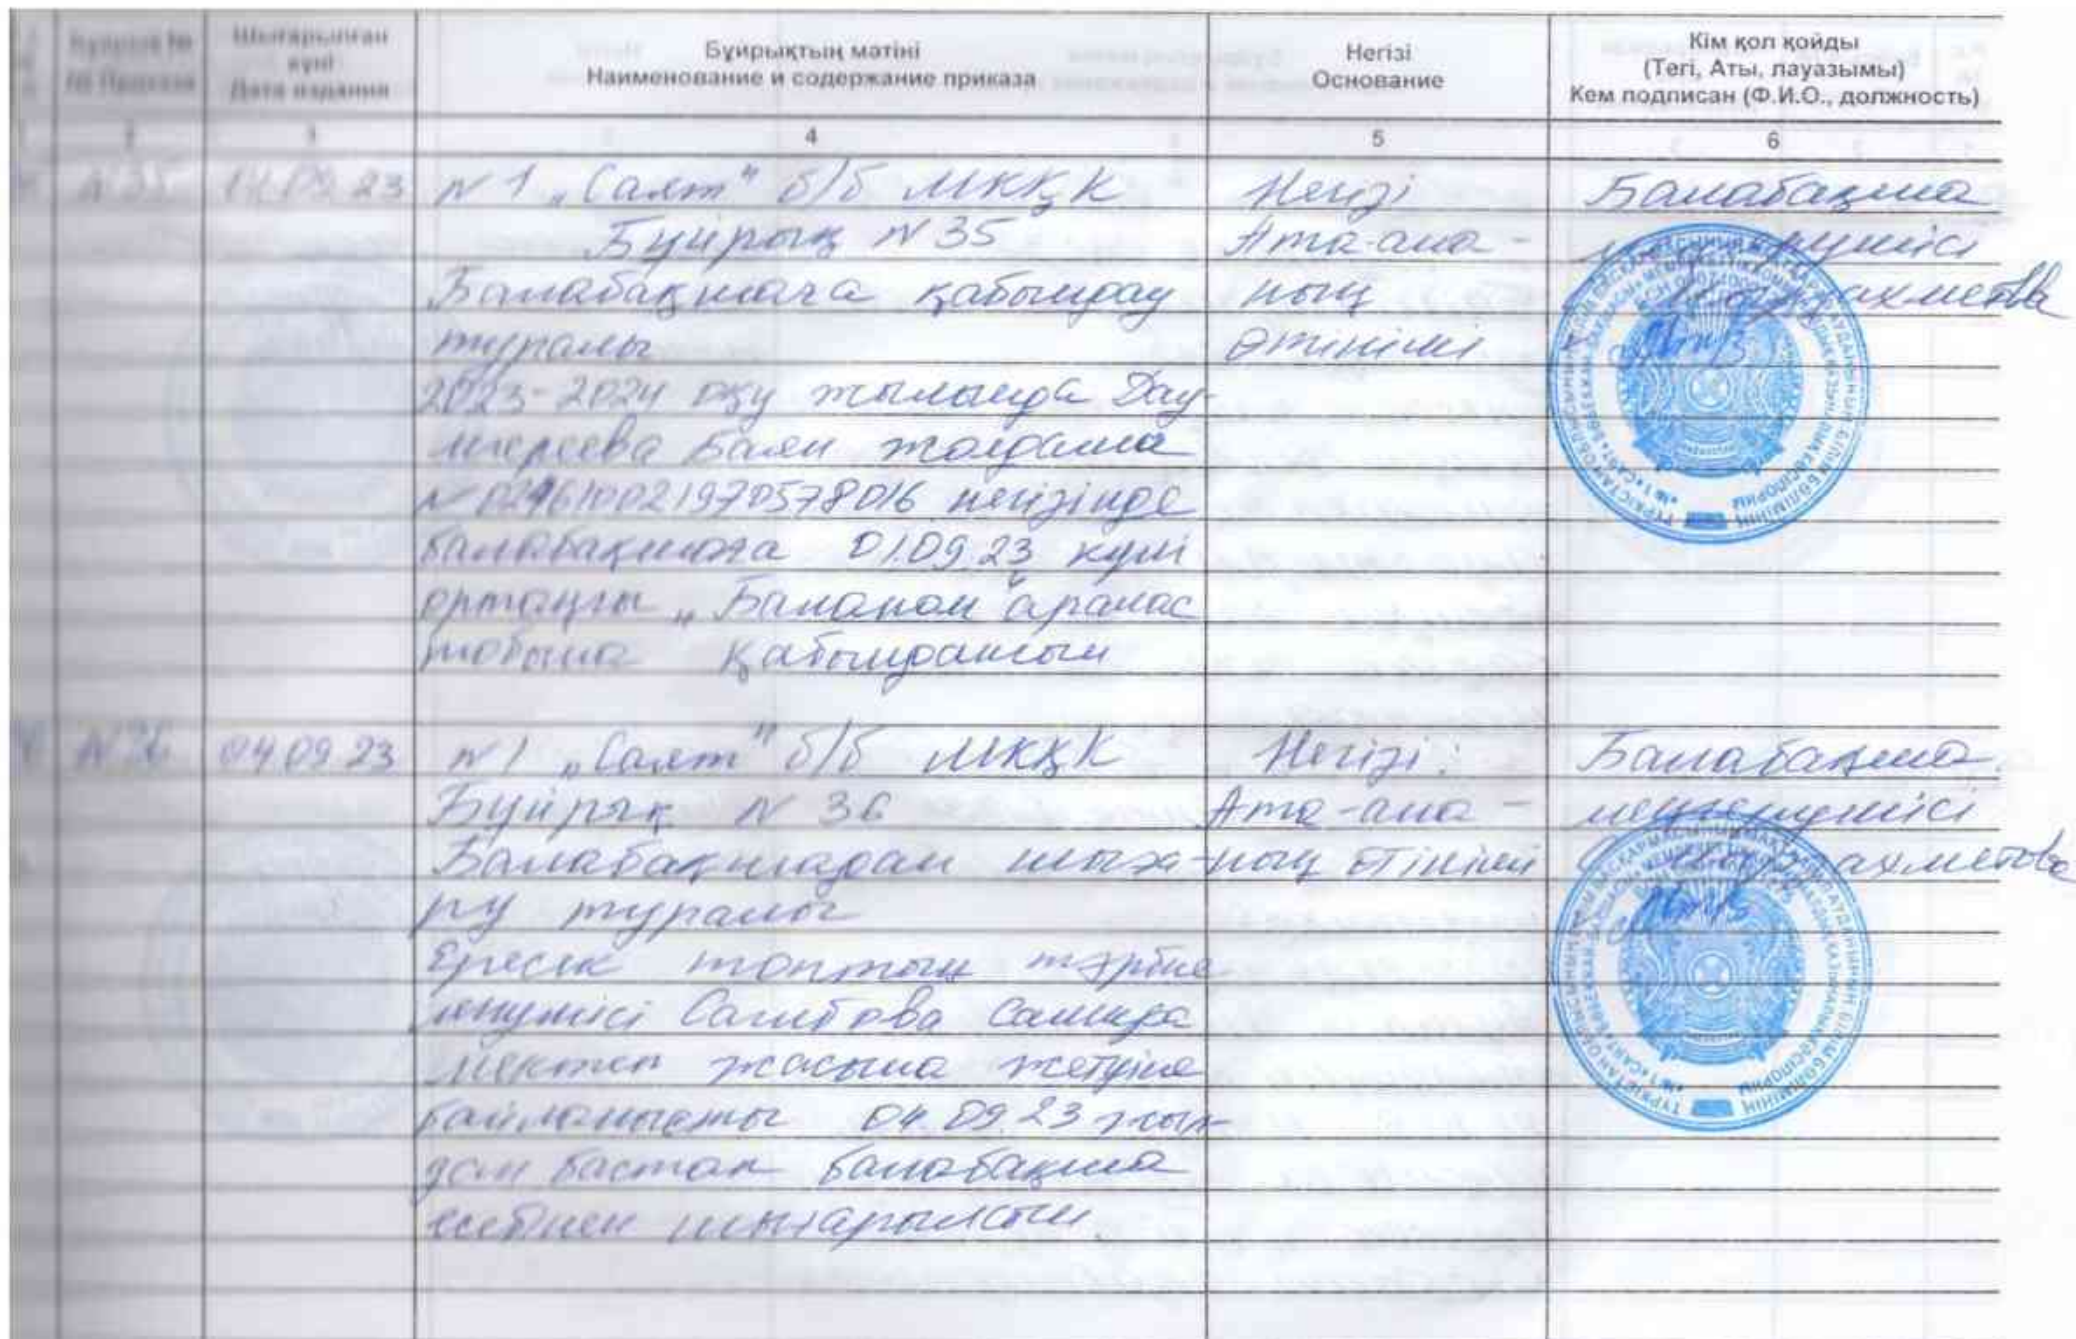 Бұйрық №
№ Приказа
Шығарылған
күні
Дата издания
Бұйрықтың мәтіні
Наименование и содержание приказа
Негізі
Основание
Кім қол қойды
(Тегі, Аты, лауазымы)
Кем подписан (Ф.И.О., должность)
2
3
4
5
6
N 35
04.09.23
N 1 „Саят" б/б МКҚК
Бұйрық N 35
Балабақшаға қабылдау
туралы
2023-2024 оқу жылында Дау-
баян жолдама
негізінде
балабақшаға 01.09.23 күні
ортаңғы „Балапан" аралас
тобына қабылдансын
Негізі
Ата-ана-
ның
өтініші
Балабақша
N 36
04.09.23
N 1 „Саят" б/б МКҚК
Бұйрық N 36
Балабақшадан шыға-
ру туралы
Ересек топтың тәрбие-
ленушісі Сағитова
мектеп жасына жетуіне
байланысты 04.09.23 жыл-
дан бастап балабақша
есебінен шығарылсын.
Негізі:
Ата-ана-
ның өтініші
Балабақша
меңгерушісі